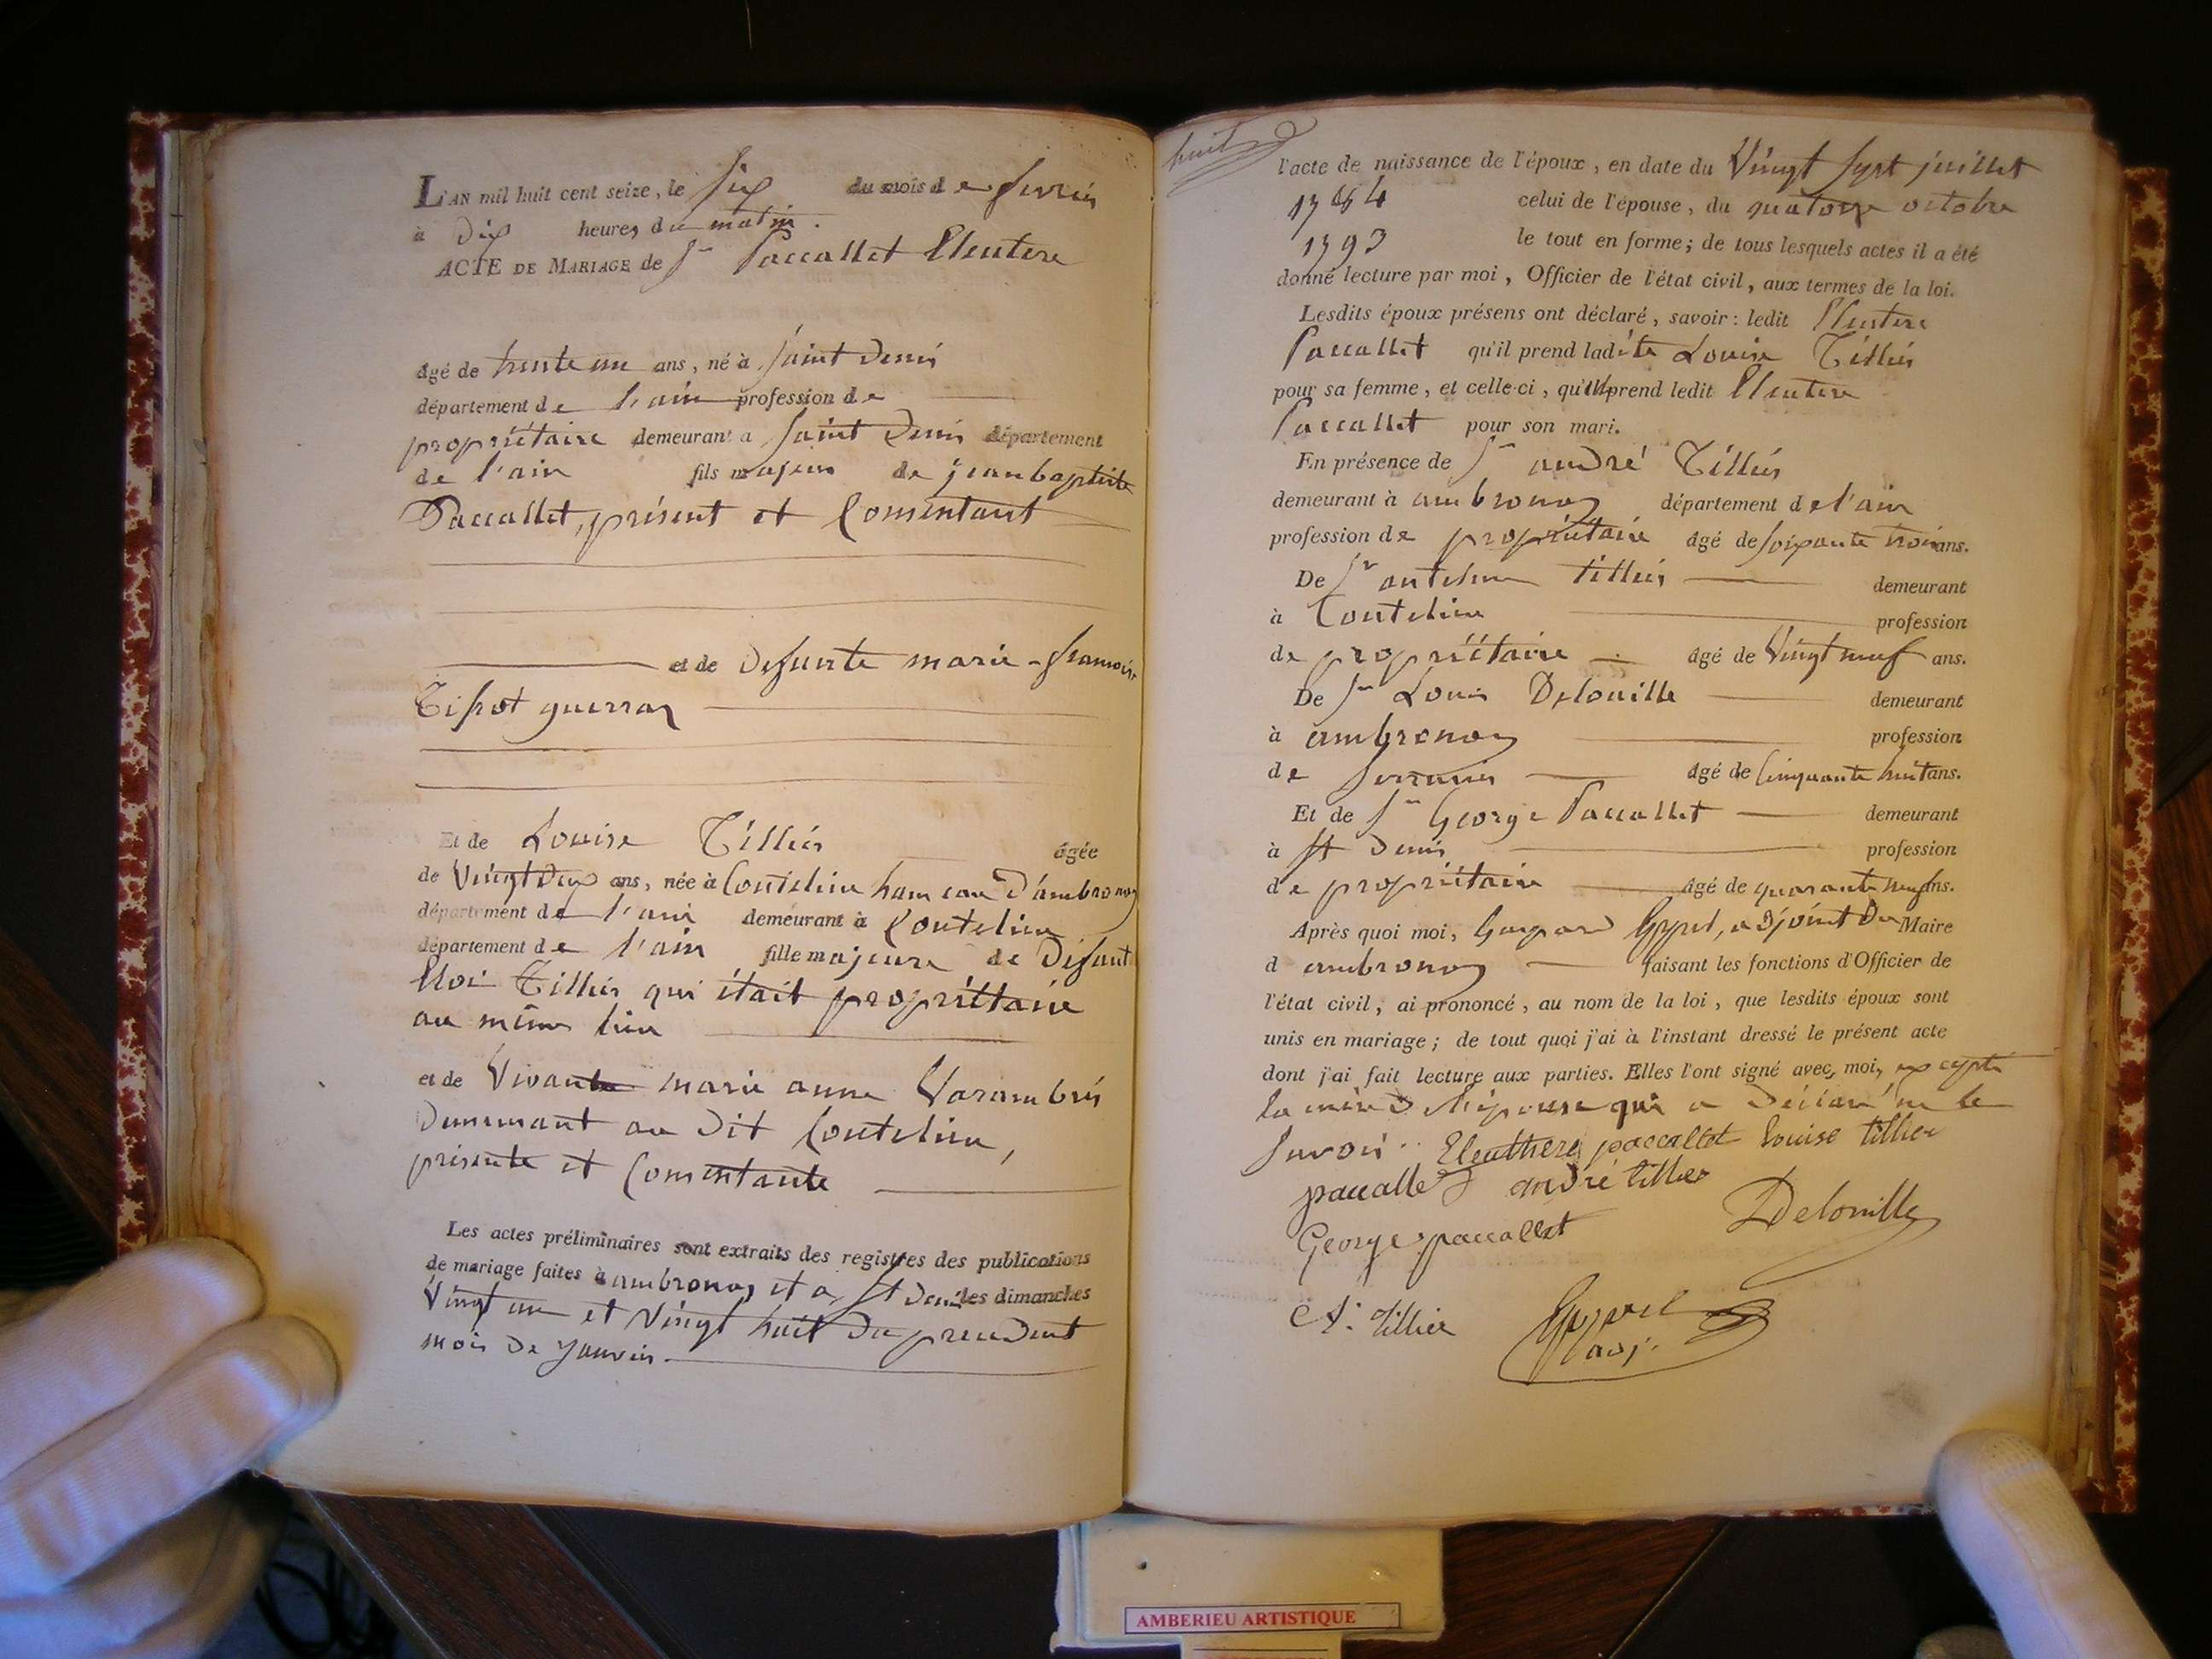 L'AN mil huit cent seize, le six du mois de fevrier
à dix heures du matin.
ACTE DE MARIAGE de Sr Paccallet Eleutere
âgé de trente un ans, né à Saint Denis
département de l'ain profession de
propriétaire demeurant a Saint Denis département
de l'ain fils majeur de jean baptiste
Paccallet, présent et Consentant
et de Defunte marie-francoise
Tissot guerraz
Et de Louise Tillier âgée
de Vingt deux ans, née à Coutelieu hameau d'ambronay
département de l'ain demeurant à Coutelieu
département de l'ain fille majeure de Défunt
Eloi Tillier qui était propriétaire
au même lieu
et de Vivante marie anne Varambier
Demeurant au Dit Coutelieu,
présente et Consentante
Les actes préliminaires sont extraits des registres des publications
de mariage faites à ambronay et a St Denis les dimanches
Vingt un et Vingt huit du precedent
mois de janvier.
huit
l'acte de naissance de l'époux, en date du Vingt sept juillet
1784 celui de l'épouse, du quatorze octobre
1793 le tout en forme; de tous lesquels actes il a été
donné lecture par moi, Officier de l'état civil, aux termes de la loi.
Lesdits époux présens ont déclaré, savoir: ledit Eleutere
Paccallet qu'il prend ladite Louise Tillier
pour sa femme, et celle-ci, qu'elle prend ledit Eleutere
Paccallet pour son mari.
En présence de Sr andré Tillier
demeurant à ambronay département de l'ain
profession de propriétaire âgé de soixante trois ans.
De Sr antelme tillier demeurant
à Coutelieu profession
de propriétaire âgé de Vingt neuf ans.
De Sr Louis Delouille demeurant
à ambronay profession
de serrurier âgé de Cinquante huit ans.
Et de Sr George Paccallet demeurant
à St Denis profession
de propriétaire âgé de quarante neuf ans.
Après quoi moi, Gaspard Gyprel, adjoint Du Maire
d ambronay faisant les fonctions d'Officier de
l'état civil, ai prononcé, au nom de la loi, que lesdits époux sont
unis en mariage; de tout quoi j'ai à l'instant dressé le présent acte
dont j'ai fait lecture aux parties. Elles l'ont signé avec moi, excepté
la mère de l'épouse qui a déclaré ne le
savoir. Eleuthere paccallet louise tillier
paccallet andré tillier
George paccallet Delouille
A. tillier adj.
AMBERIEU ARTISTIQUE